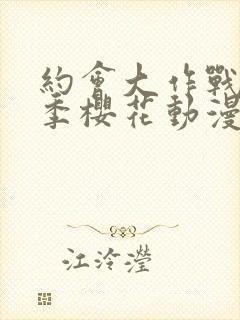 約會大作戰
季櫻花動漫
江泠瀅